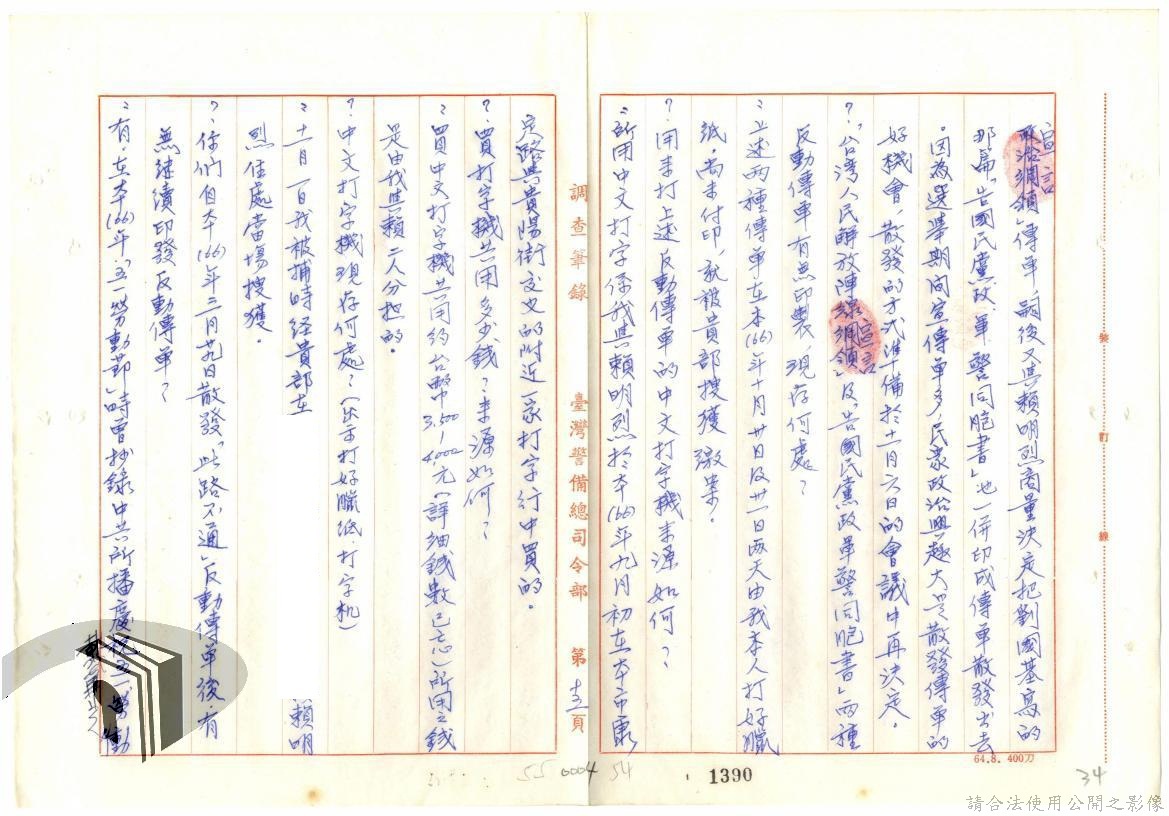 宣言
政治綱領」傳單,嗣後又與賴明烈商量決定把劉國基寫的
那篇「告國民黨政、軍、警同胞書」也一併印成傳單散發出去
。因為選舉期間宣傳單多,民眾政治興趣大是散發傳單的
好機會,散發的方式準備於十一月六日的會議中再決定。
?「台灣人民解放陣線綱領」及「告國民黨政軍警同胞書」兩種
宣言
反動傳單有無印製、現存何處?
:上述兩種傳單在本(66)年十月卅日及卅一日兩天由我本人打好臘
紙,尚未付印,就被貴部搜獲繳案。
?用來打上述反動傳單的中文打字機來源如何?
:所用中文打字係我與賴明烈於本(66)年九月初在本市康
裝
訂
線
64.8. 400刀
調查筆錄 臺灣警備總司令部 第 頁
定路與貴陽街交叉的附近一家打字行中買的。
?買打字機共用多少錢?來源如何?
:買中文打字機共用約台幣3,500/4,000元(詳細錢數已忘)所用之錢
是由我與賴二人分担的。
?中文打字機現存何處?(出示打好臘紙、打字机)
:十一月一日我被捕時經貴部在 賴明
烈住處當場搜獲。
?你們自本(66)年三月廿九日散發「此路不通」反動傳單後,有
無繼續印發反動傳單?
:有,在本(66)年「五一勞動節」時曾抄錄中共所播慶祝五一勞動
55 0004 54
1390
34
請合法使用公開之影像